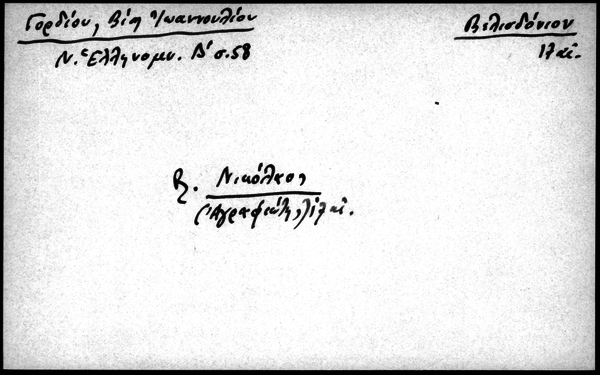 Γορδίου, Βίος Ἰωαννουλίου
Βελισδόνιον
Ν. Ἑλληνομν. Δ' σ. 58
17 αἰ.
Β. Νικόλαος
(Ἀγραφιώτης) 17 αἰ.